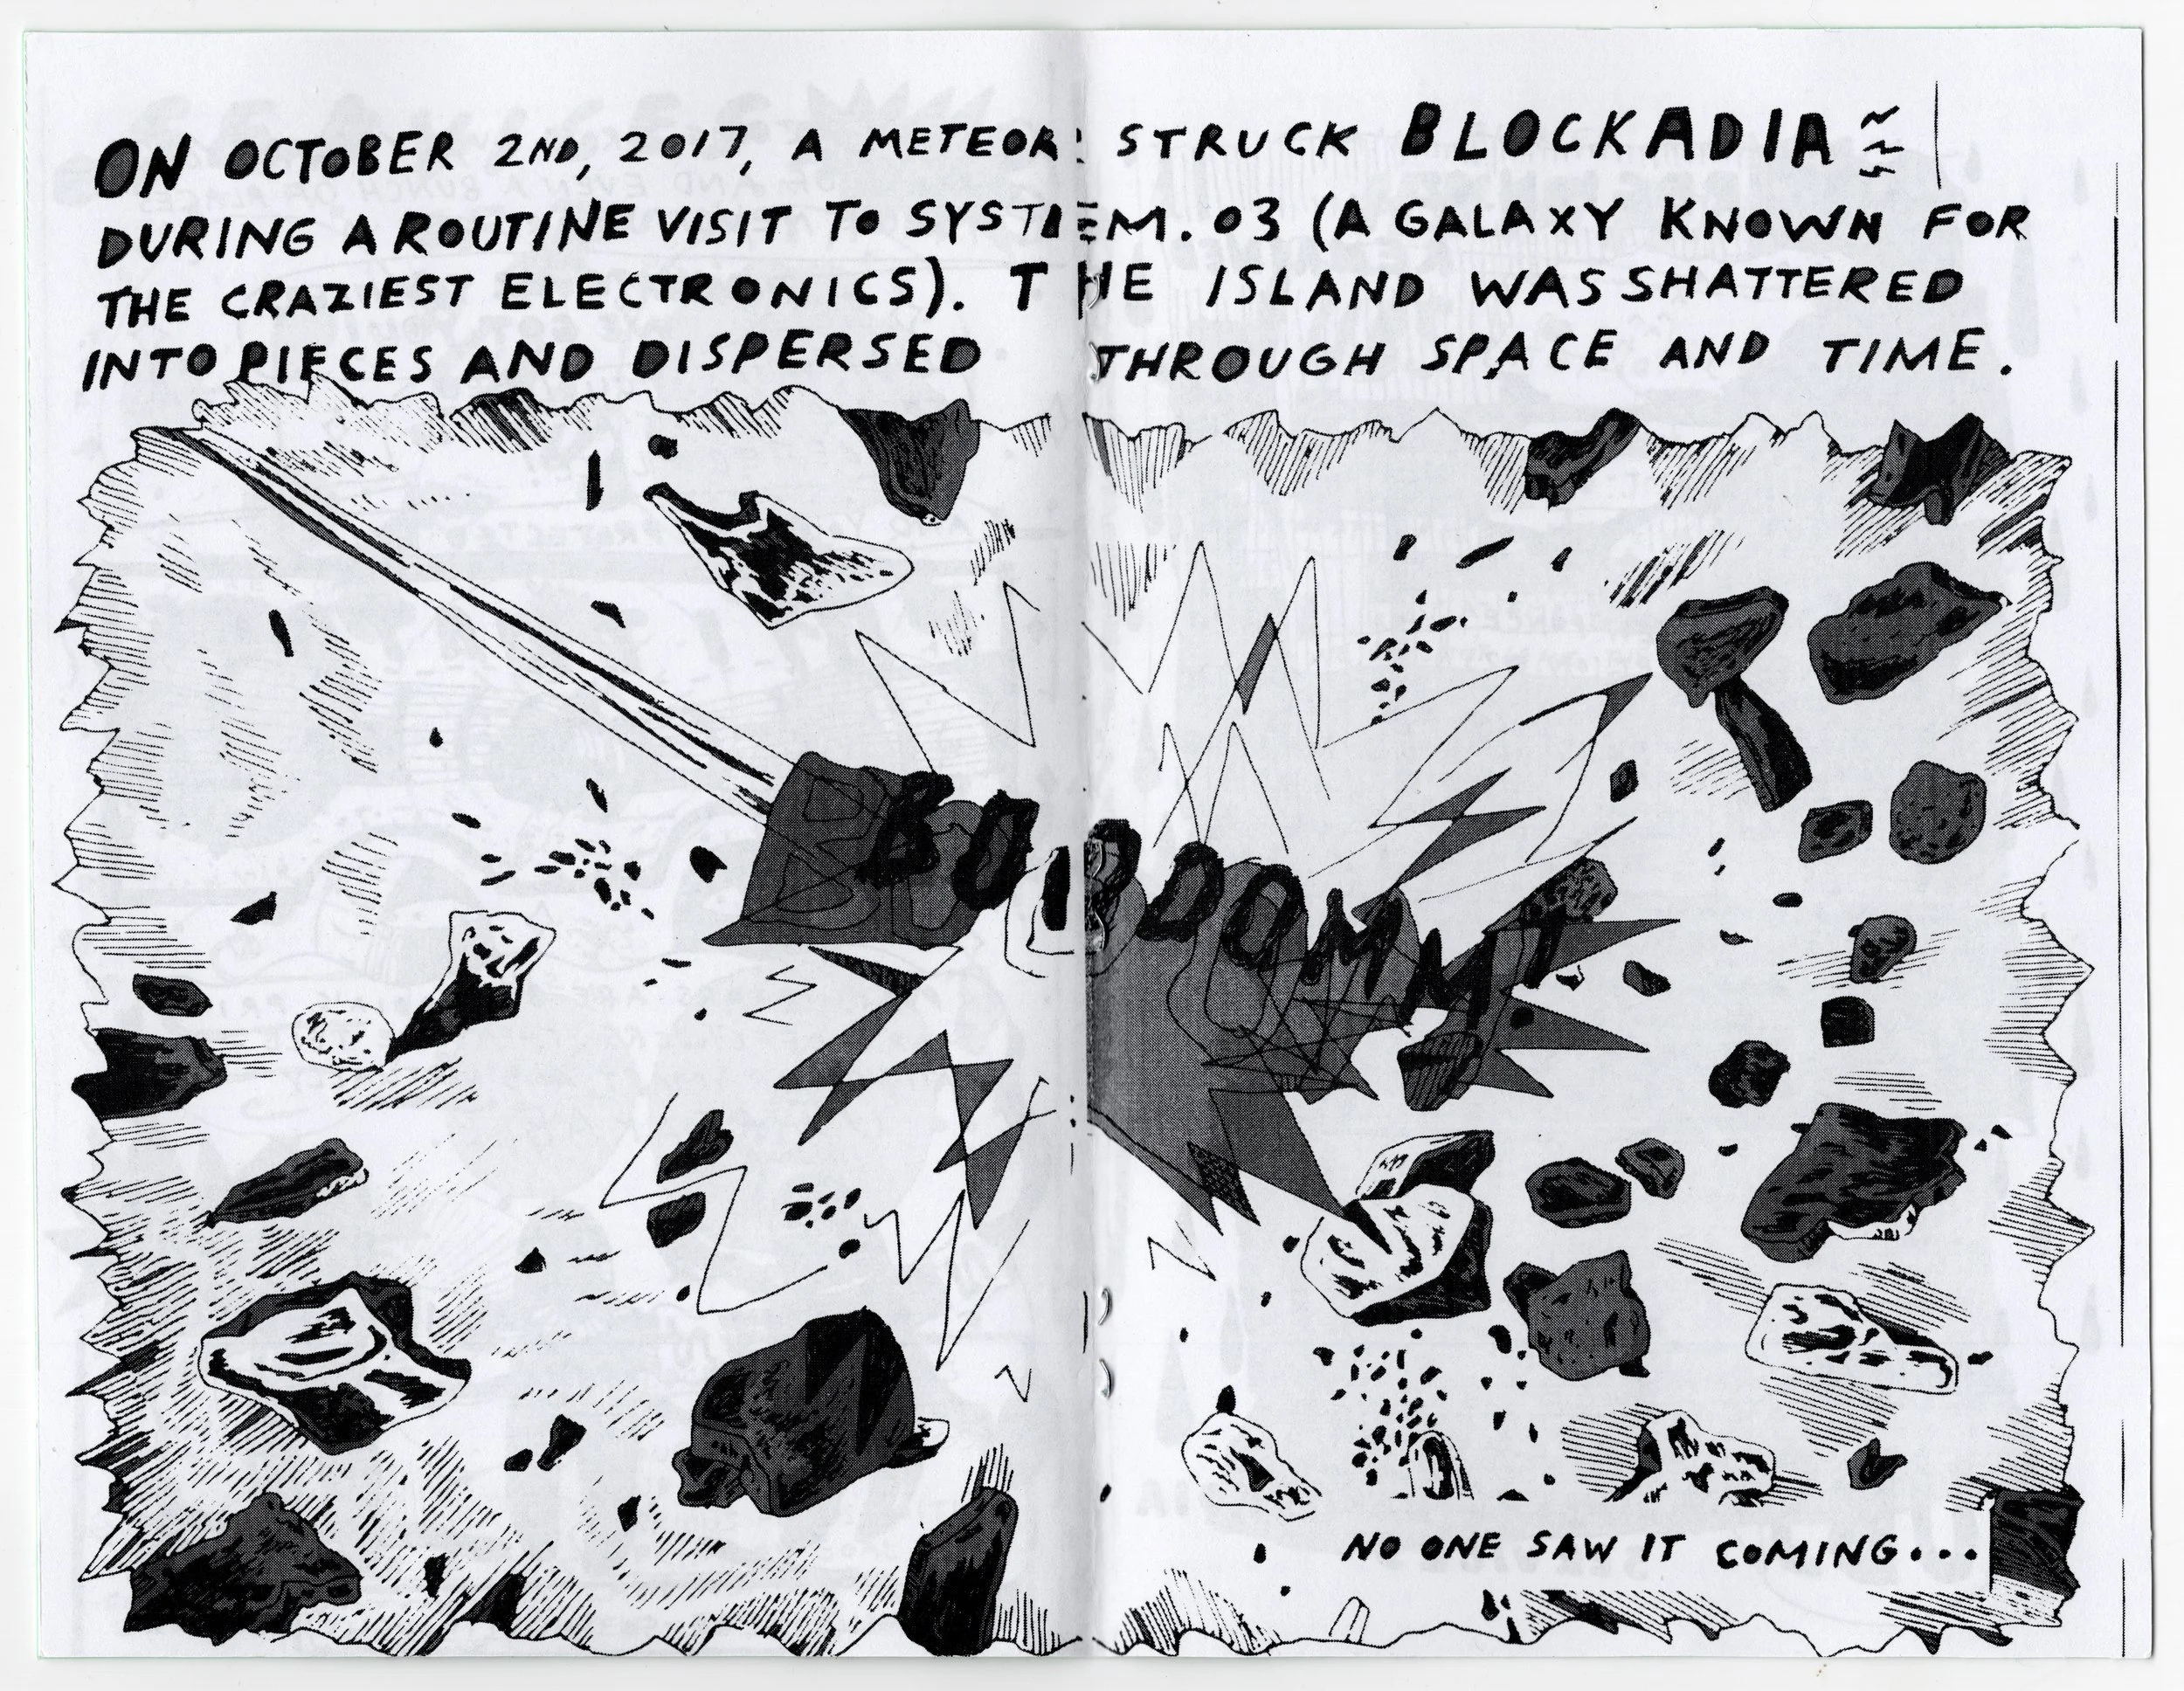 ON OCTOBER 2ND, 2017, A METEOR STRUCK BLOCKADIA
DURING A ROUTINE VISIT TO SYSTEM. 03 (A GALAXY KNOWN FOR
THE CRAZIEST ELECTRONICS). THE ISLAND WAS SHATTERED
INTO PIECES AND DISPERSED THROUGH SPACE AND TIME.
NO ONE SAW IT COMING...